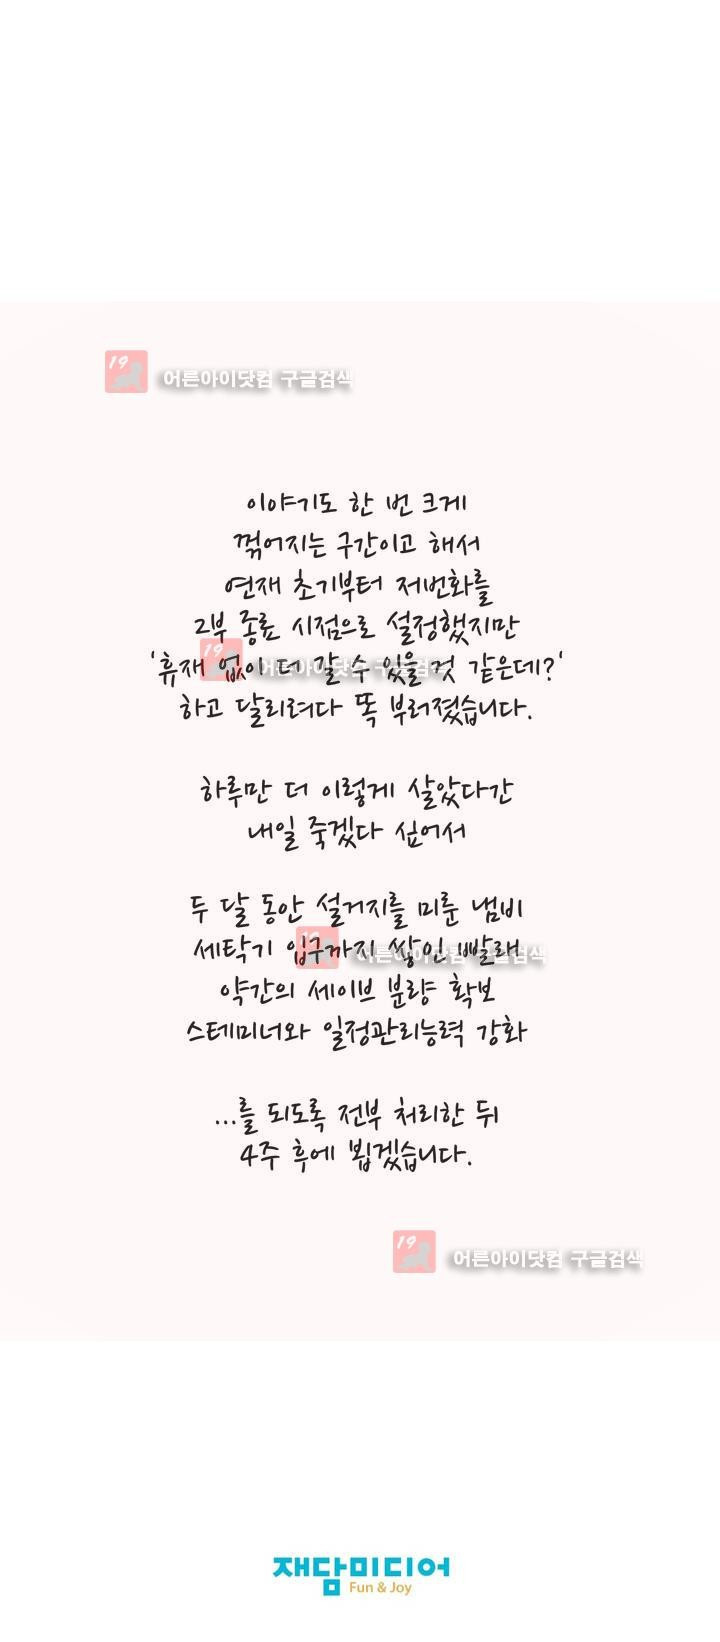 19 어른아이닷컴 구글검색
이야기도 한 번 크게
꺾어지는 구간이고 해서
연재 초기부터 저번화를
2부 종료 시점으로 설정했지만
19 어른아이닷컴 구글검색
'휴재 없이 더 갈 수 있을 것 같은데?'
하고 달리려다 똑 부러졌습니다.
하루만 더 이렇게 살았다간
내일 죽겠다 싶어서
두 달 동안 설거지를 미룬 냄비
19 어른아이닷컴 구글검색
세탁기 입구까지 쌓인 빨래
약간의 세이브 분량 확보
스테미너와 일정관리능력 강화
...를 되도록 전부 처리한 뒤
4주 후에 뵙겠습니다.
19 어른아이닷컴 구글검색
재담미디어
Fun & Joy